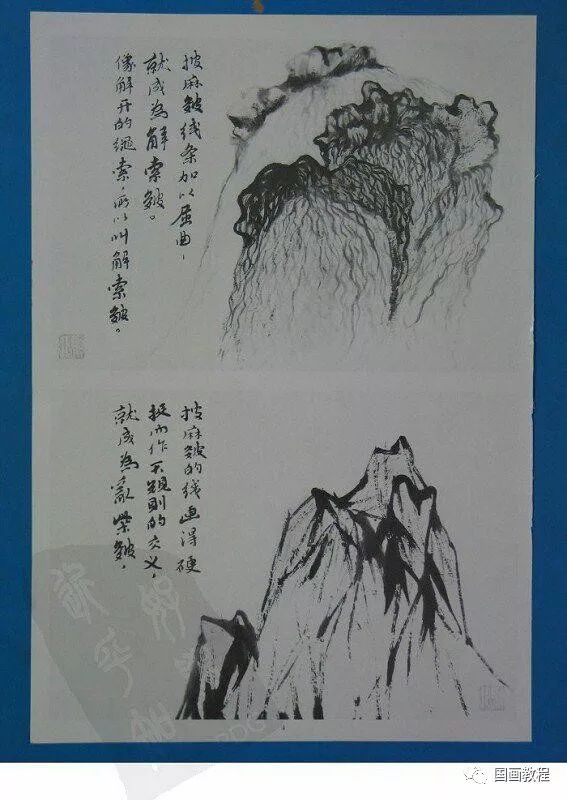 披麻皴线条加以屈曲，
就成为解索皴。
像解开的绳索，所以叫解索皴。
披麻皴的线画得硬
挺而作不规则的交叉，
就成为乱柴皴。
国画教程